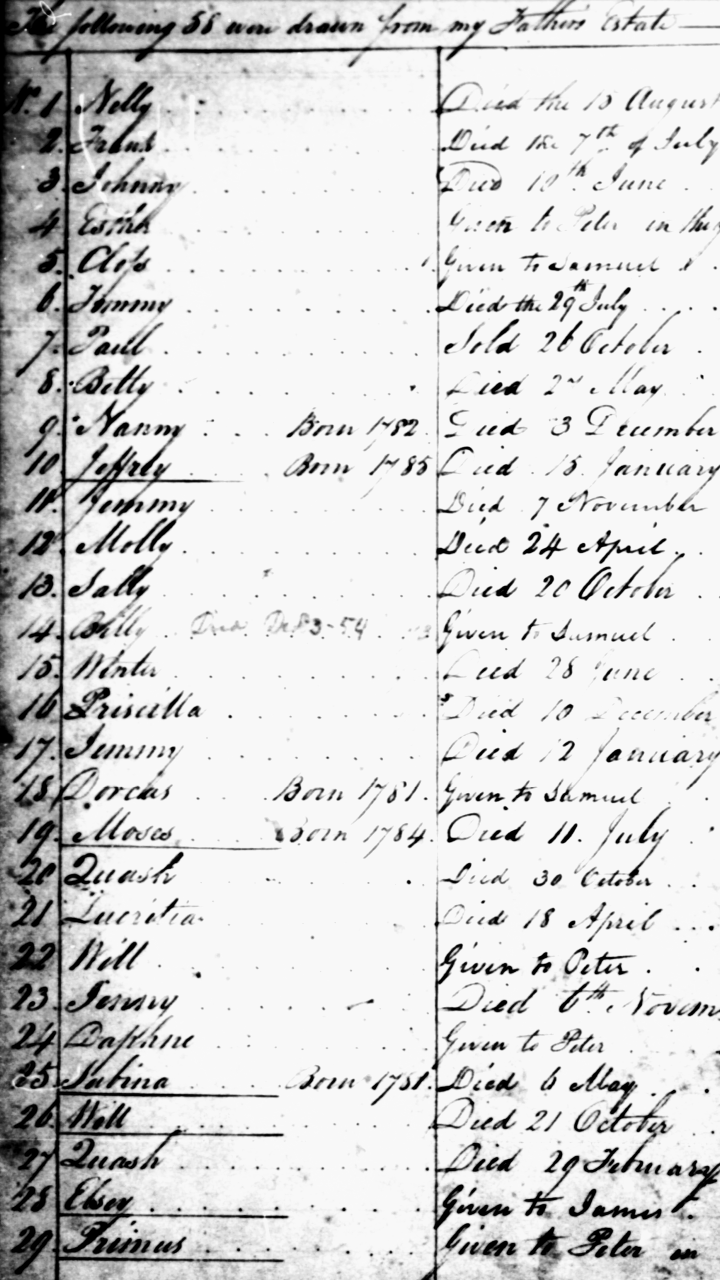 The following 58 were drawn from my Fathers Estate
No. 1 Nelly Died the 15 August
2. Frank Died the 7th of July
3. Johnny Died 10th June
4. Esther Given to Peter in
5. Given to Samuel
6. Tommy Died the 29th July
7. Paul Sold 26 October
8. Betty Died 2nd May
9. Nanny Born 1782 Died 3 December
10. Jeffrey Born 1785 Died 15 January
11. Jemmy Died 7 November
12. Molly Died 24 April
13. Sally Died 20 October
14. Billy Died Given to Samuel
15. Winter Died 28 June
16. Priscilla Died 10 December
17. Jemmy Died 12 January
18. Dorcas Born 1781. Given to Samuel
19. Moses Born 1784. Died 11. July
20 Quash Died 30 October
21 Lucretia Died 18 April
22 Will Given to Peter
23. Jenny Died 6th Novem
24 Daphne Given to Peter
25. Sabina Born 1781. Died 6 May
26. Will Died 21 October
27 Quash Died 29 February
28 Elsey Given to James
29. Primus Given to Peter on